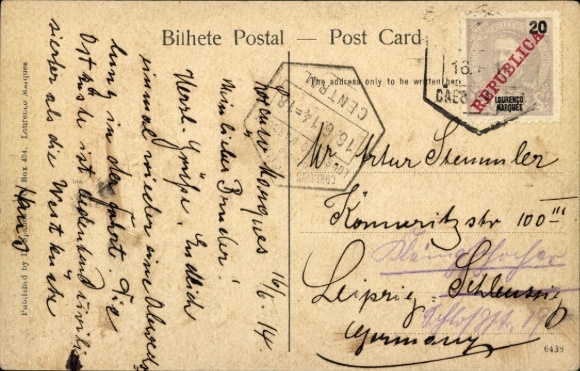 Bilhete Postal — Post Card
The address only to be written here
20
REPUBLICA
LOURENÇO
MARQUES
16.
CENTRAL
16.6.14=18
Lourenço Marques 16/6.14
Mein lieber Bruder!
Herzl. Grüße Endlich
einmal wieder eine Abwechs
lung in der Fahrt. Die
Ostküste ist bedeutend zivili
sierter als die Westküste
Hans
Mr Artur Stemmler
Könneritzstr 100 III
Leipzig-Schleussig
Germany
Schloßstr. 19
Box 434. Lourenço Marques
6438